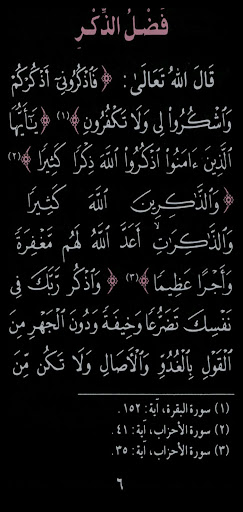 فَضْلُ الذِّكْرِ
قَالَ اللهُ تَعَالَى: ﴿فَاذْكُرُونِي أَذْكُرْكُمْ
وَاشْكُرُوا لِي وَلَا تَكْفُرُونِ﴾(١) ﴿يَا أَيُّهَا
الَّذِينَ ءَامَنُوا اذْكُرُوا اللَّهَ ذِكْرًا كَثِيرًا﴾(٢)
﴿وَالذَّاكِرِينَ اللَّهَ كَثِيرًا
وَالذَّاكِرَاتِ أَعَدَّ اللَّهُ لَهُم مَّغْفِرَةً
وَأَجْرًا عَظِيمًا﴾(٣) ﴿وَاذْكُر رَّبَّكَ فِي
نَفْسِكَ تَضَرُّعًا وَخِيفَةً وَدُونَ الْجَهْرِ مِنَ
الْقَوْلِ بِالْغُدُوِّ وَالْآصَالِ وَلَا تَكُن مِّنَ
(١) سورة البقرة، آية: ١٥٢.
(٢) سورة الأحزاب، آية: ٤١.
(٣) سورة الأحزاب، آية: ٣٥.
٦